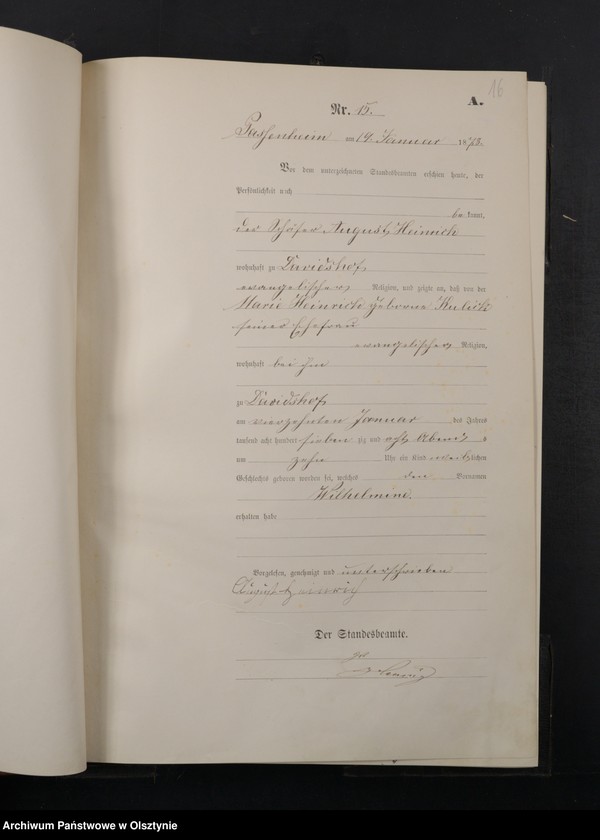 16
A.
Nr. 15.
Passenheim am 19. Januar 1878.
Vor dem unterzeichneten Standesbeamten erschien heute, der
Persönlichkeit nach
be kannt,
der Schäfer August Heinrich
wohnhaft zu Davidshof
evangelischer Religion, und zeigte an, daß von der
Marie Heinrich geborene Kulick
seiner Ehefrau
evangelischer Religion,
wohnhaft bei ihm
zu Davidshof
am vierzehnten Januar des Jahres
tausend acht hundert sieben zig und acht Abends
um zehn Uhr ein Kind weiblichen
Geschlechts geboren worden sei, welches den Vornamen
Wilhelmine.
erhalten habe
Vorgelesen, genehmigt und unterschrieben
August Heinrich
Der Standesbeamte.
Archiwum Państwowe w Olsztynie